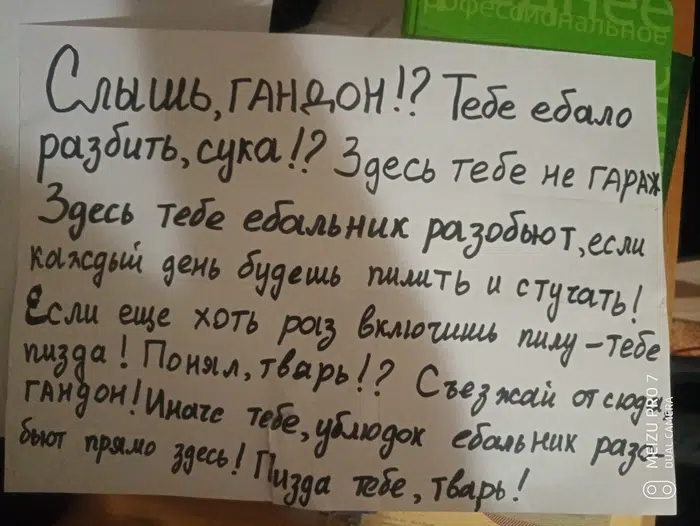 рофессиональное
Слышь, ГАНДОН!? Тебе ебало
разбить, сука!? Здесь тебе не ГАРАЖ
Здесь тебе ебальник разобьют, если
каждый день будешь пилить и стучать!
Если еще хоть раз включишь пилу - тебе
пизда! Понял, тварь!? Съезжай отсюда
ГАНДОН! Иначе тебе, ублюдок ебальник разо
бьют прямо здесь! Пизда тебе, тварь!
MEIZU PRO 7
DUAL CAMERA